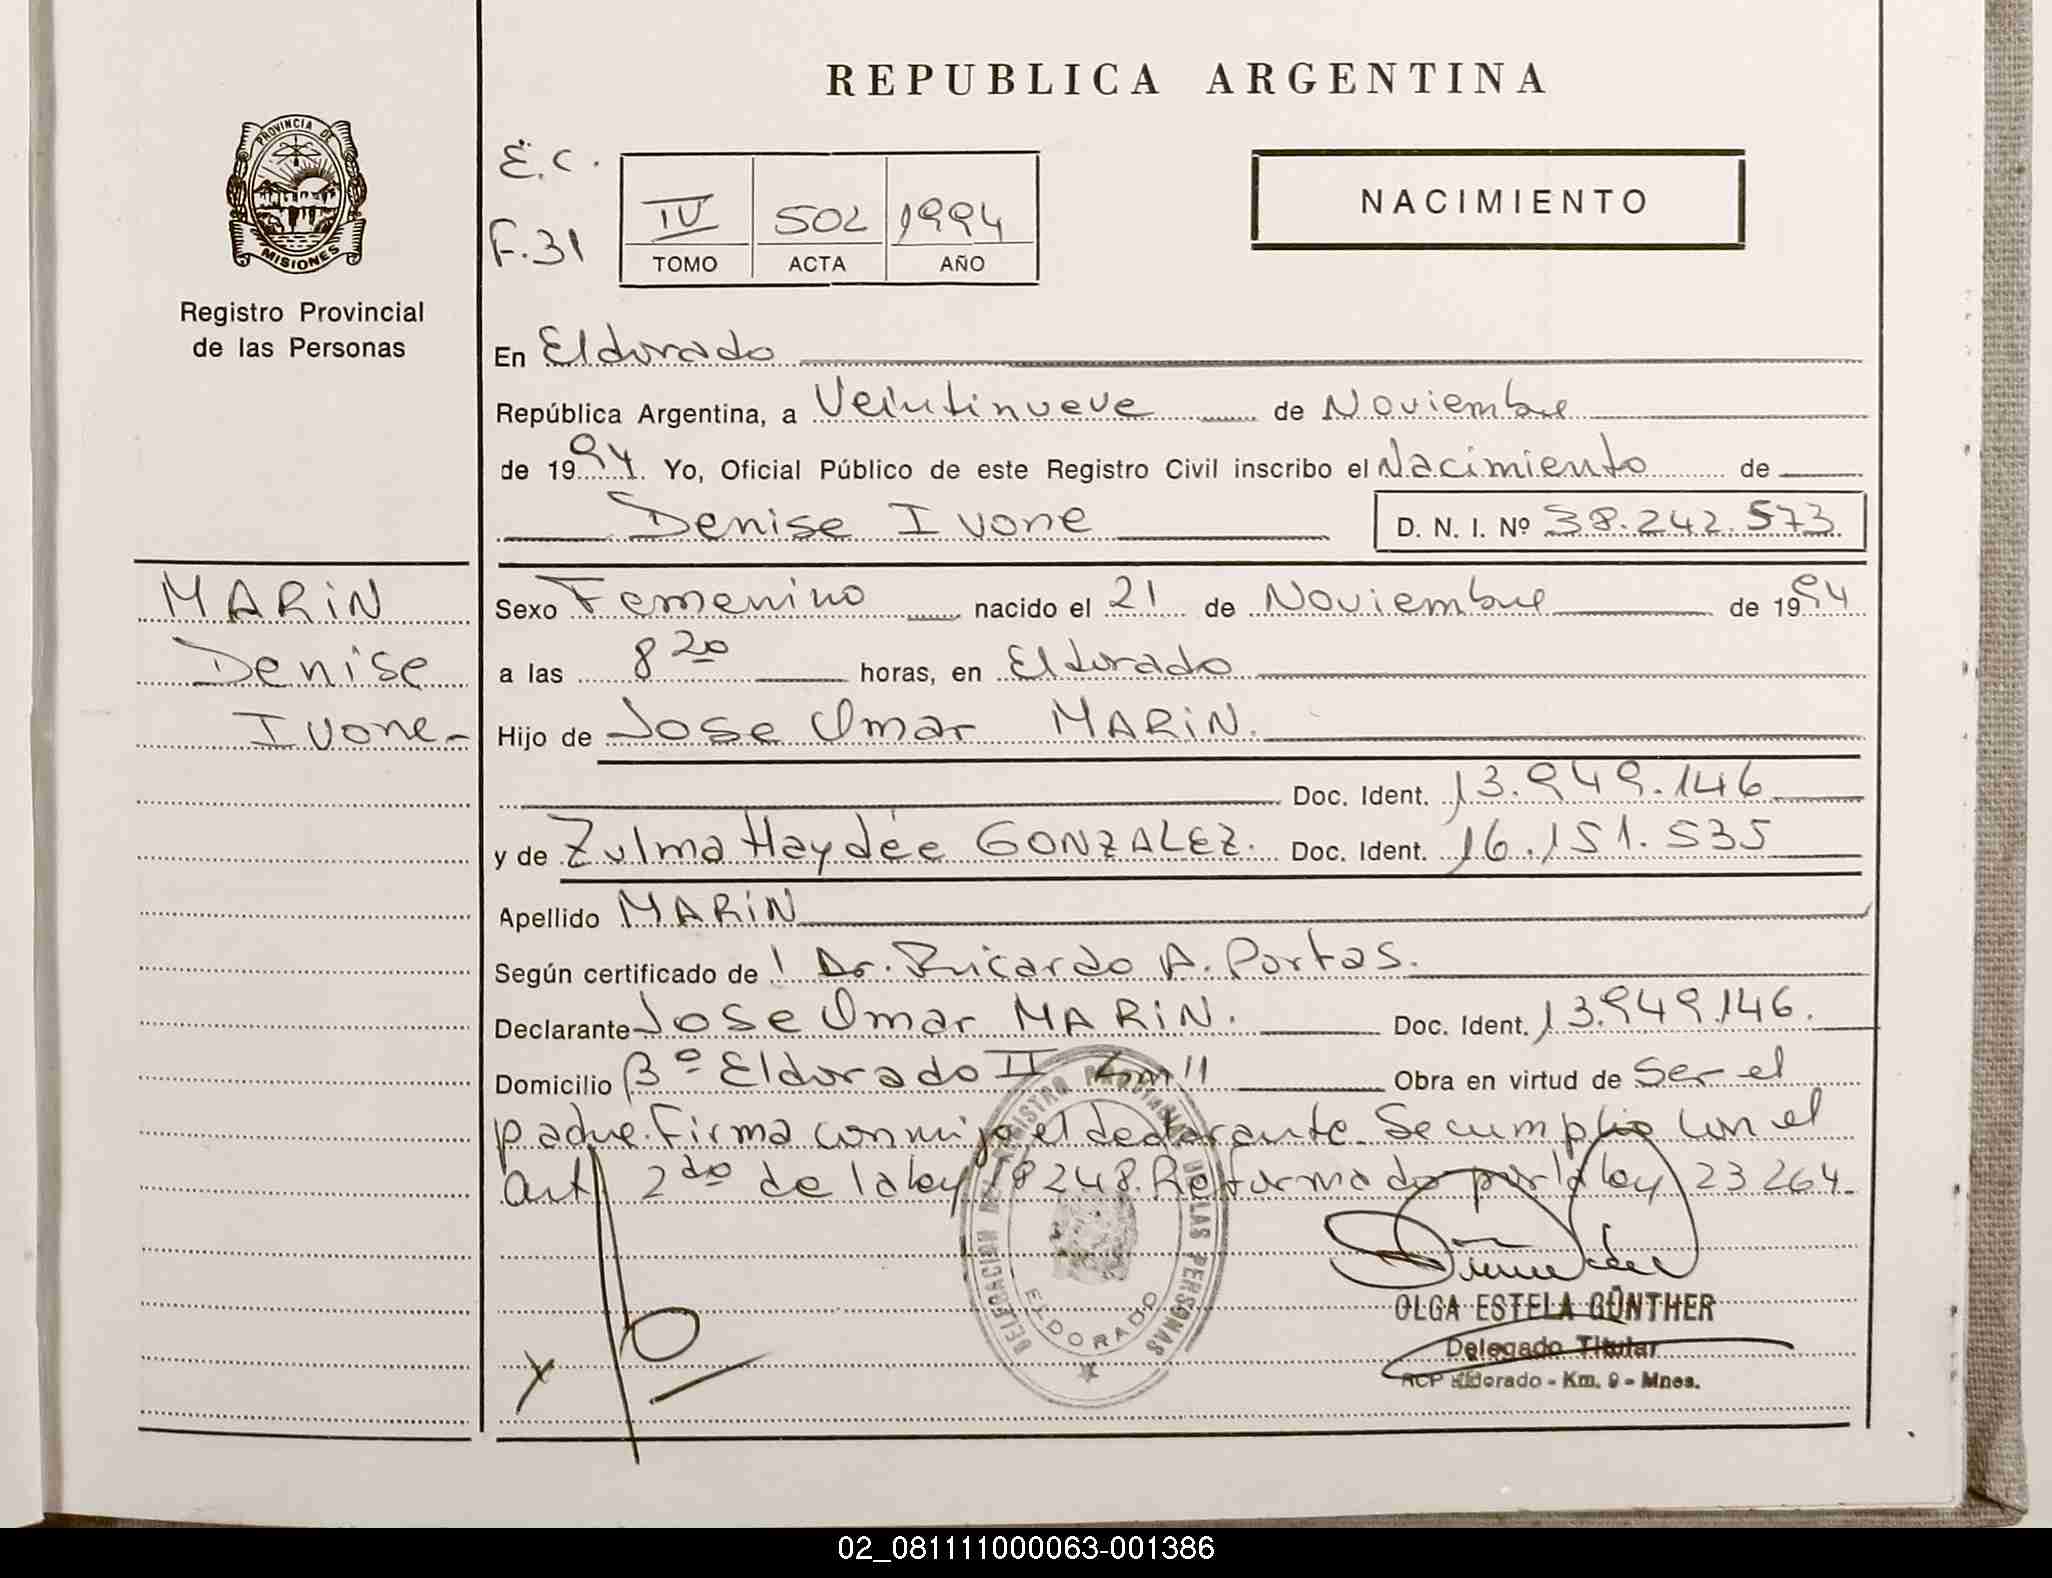 REPUBLICA ARGENTINA
PROVINCIA DE
MISIONES
Registro Provincial
de las Personas
E.C.
F.31
IV 502 1994
TOMO ACTA AÑO
NACIMIENTO
En Eldorado
República Argentina, a Veintinueve de Noviembre
de 1994. Yo, Oficial Público de este Registro Civil inscribo el Nacimiento de
Denise Ivone D. N. I. Nº 38.242.573
MARiN
Denise
Ivone-
Sexo Femenino nacido el 21 de Noviembre de 1994
a las 8 20 horas, en Eldorado
Hijo de Jose Omar MARiN.
Doc. Ident. 13.949.146
y de Zulma Haydée GONZALEZ. Doc. Ident. 16.151.535
Apellido MARiN
Según certificado de Dr. Ricardo A. Portas.
Declarante Jose Omar MARiN. Doc. Ident. 13.949.146.
Domicilio Bº Eldorado II Km 11 Obra en virtud de Ser el
padre. Firma conmigo el declarante. Se cumplio con el
art. 2do de la ley 18248. Reformado por la ley 23264.
DELEGACION DEL REGISTRO PROVINCIAL DE LAS PERSONAS
ELDORADO
OLGA ESTELA GÜNTHER
Delegado Titular
RCP Eldorado - Km. 9 - Mnes.
02_081111000063-001386